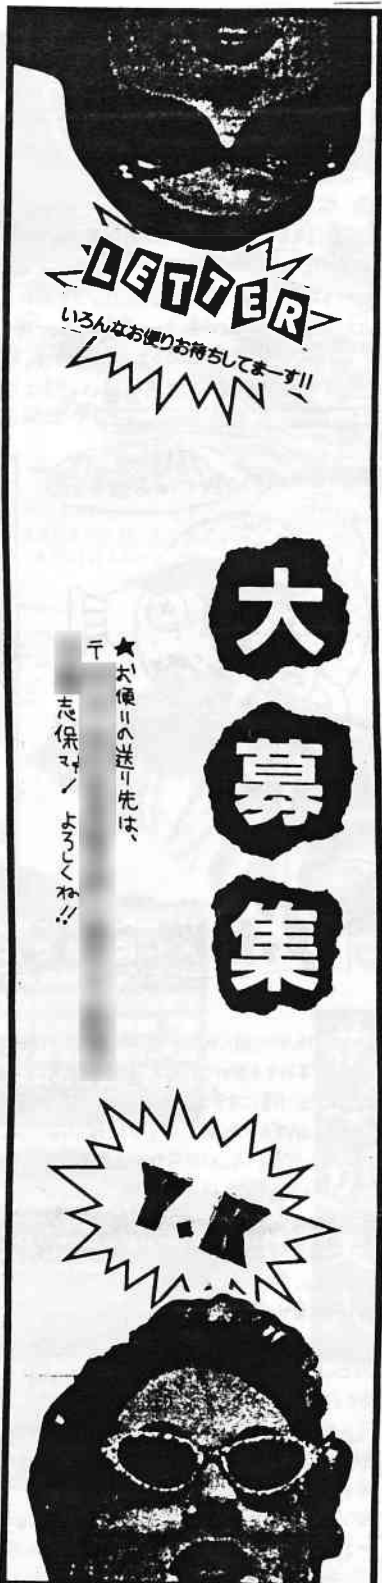 LETTER
いろんなお便りお待ちしてまーす!!
大募集
★お便りの送り先は、
〒
志保まで! よろしくね!!
Y.K